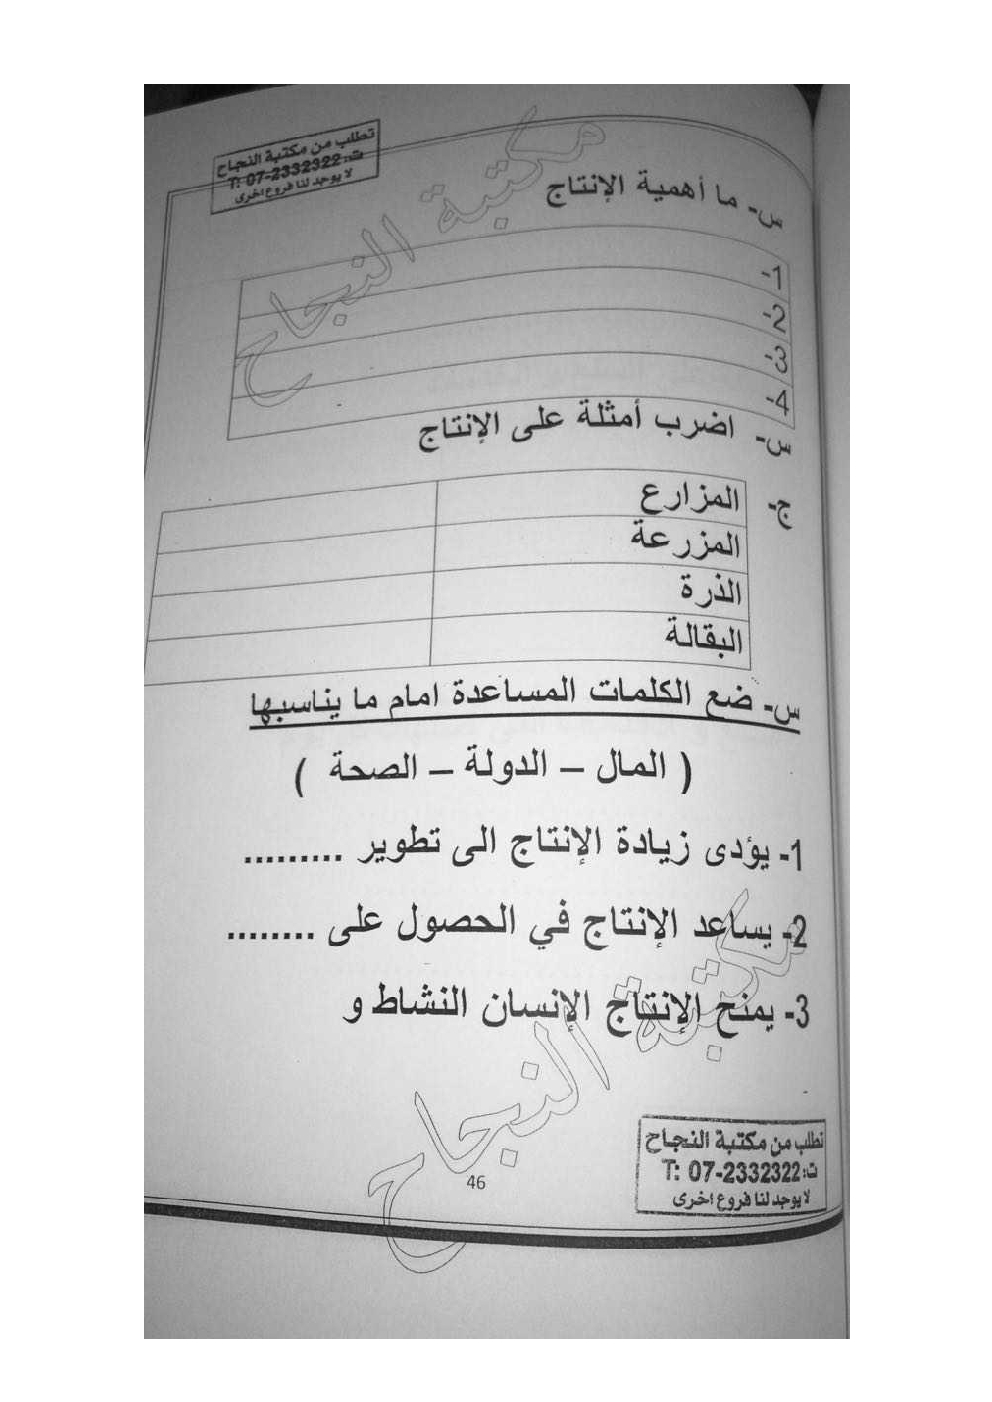 تطلب من مكتبة النجاح
ت: T: 07-2332322
لا يوجد لنا فروع اخرى
مكتبة النجاح
س- ما أهمية الإنتاج
1-
2-
3-
4-
س- اضرب أمثلة على الإنتاج
ج- المزارع
المزرعة
الذرة
البقالة
س- ضع الكلمات المساعدة امام ما يناسبها
( المال – الدولة – الصحة )
1- يؤدى زيادة الإنتاج الى تطوير .........
2- يساعد الإنتاج في الحصول على ........
3- يمنح الإنتاج الإنسان النشاط و
مكتبة النجاح
تطلب من مكتبة النجاح
ت: T: 07-2332322
لا يوجد لنا فروع اخرى
46